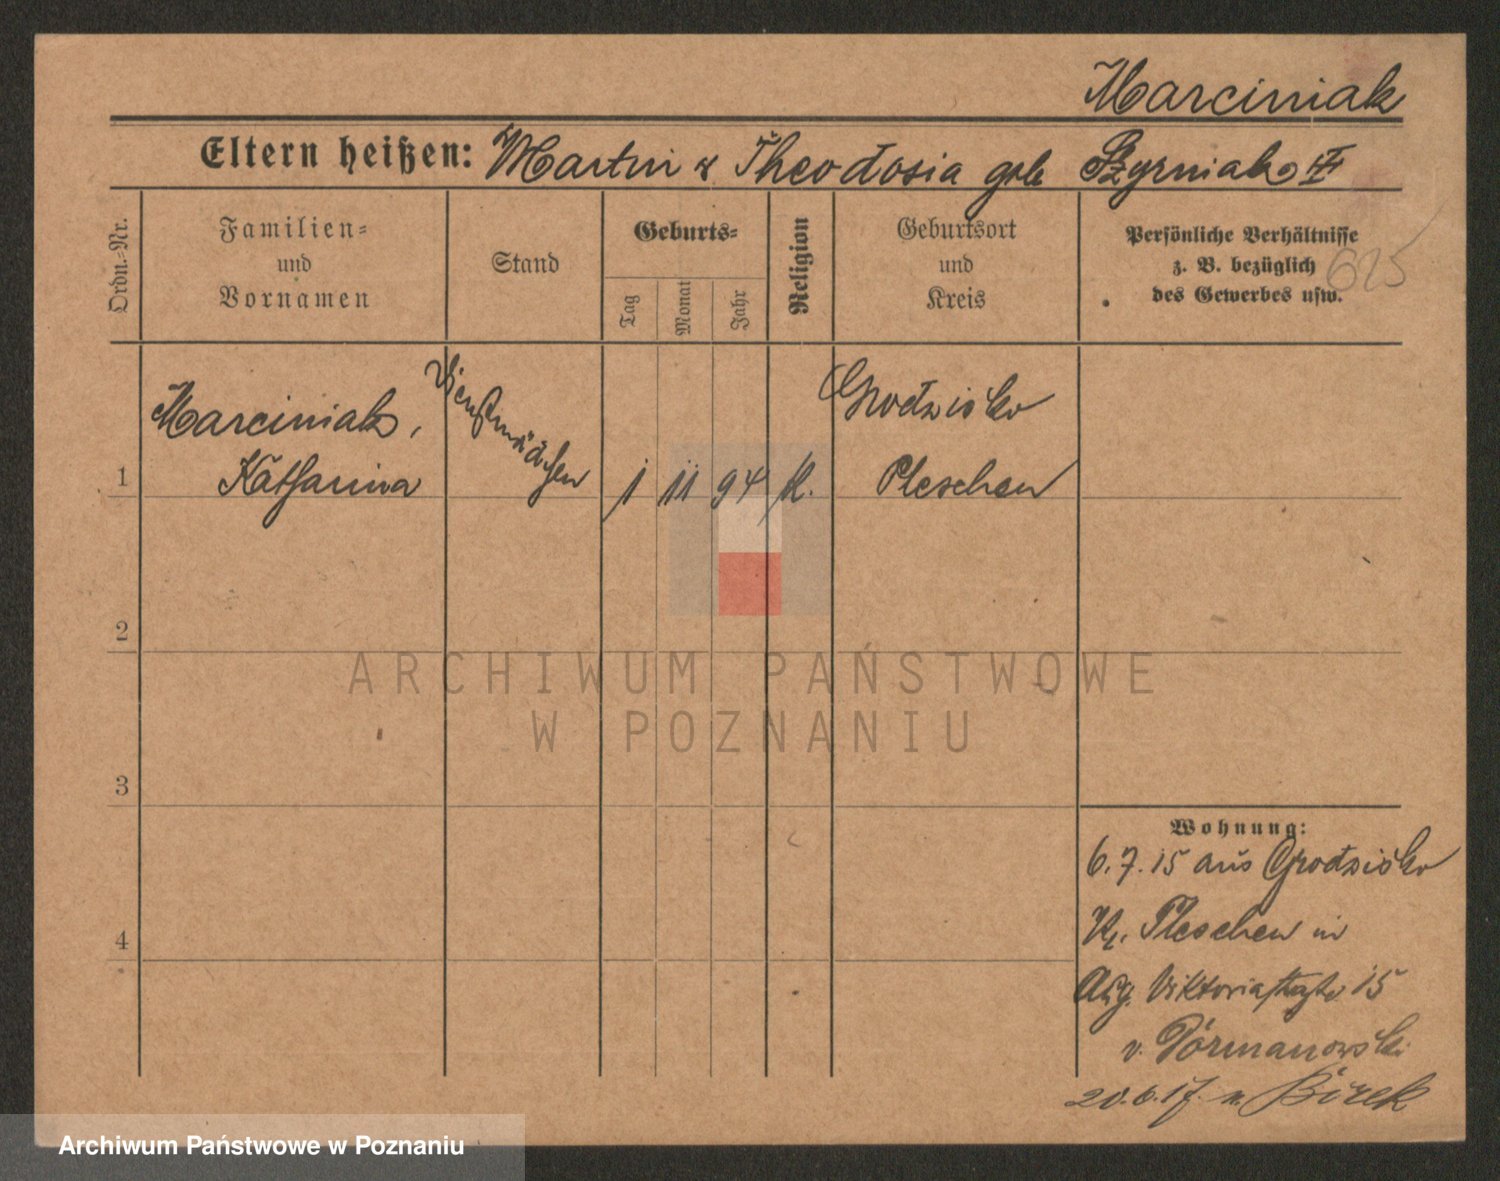 Marciniak
Eltern heißen: Martin & Theodosia geb. Szyrniak
Ordn.-Nr.
Familien-
und
Vornamen
Stand
Geburts-
Tag
Monat
Jahr
Religion
Geburtsort
und
Kreis
Persönliche Verhältnisse
z. B. bezüglich
des Gewerbes usw.
625
Marciniak,
Katharina
Dienstmädchen
1 1 11 94 K.
Grodzisko
Pleschen
2
3
4
Wohnung:
6.7.15 aus Grodzisko
Kr. Pleschen in
Aug. Viktoriastraße 15
v.
20.6.17 n. Birek
ARCHIWUM PAŃSTWOWE
W POZNANIU
Archiwum Państwowe w Poznaniu